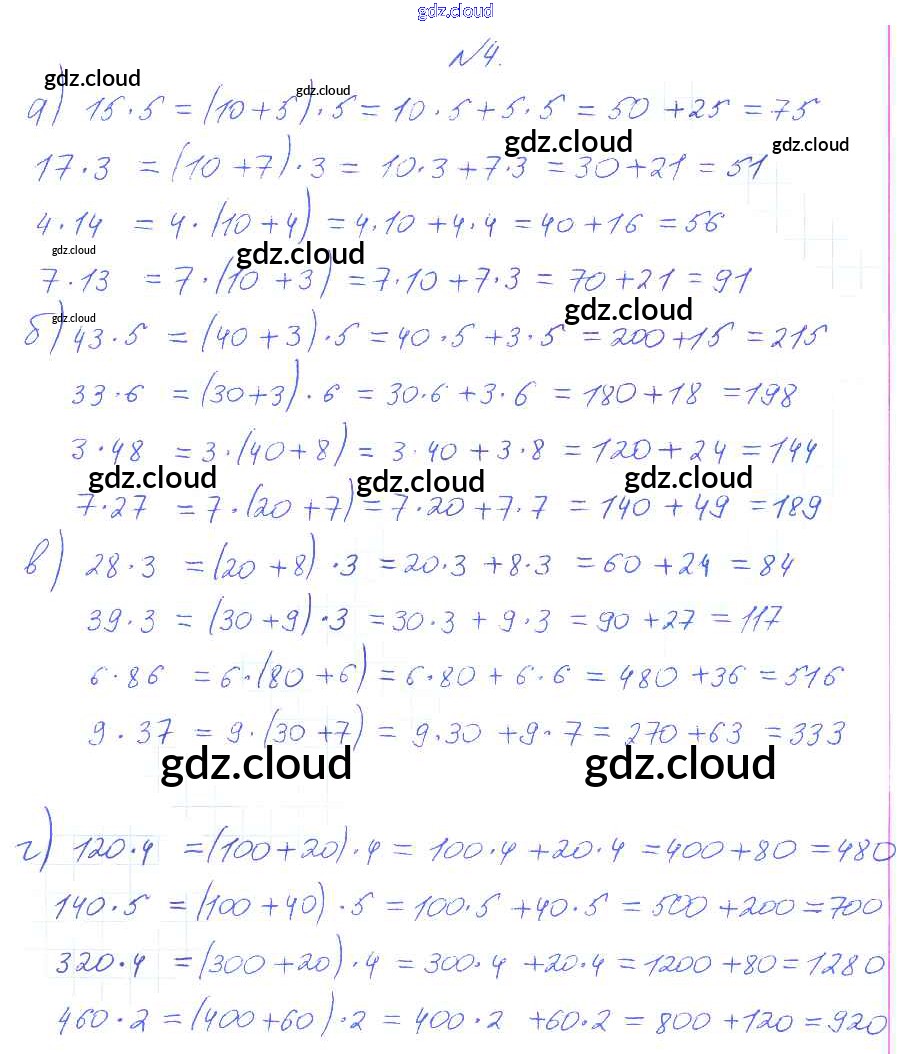 gdz.cloud
№4.
gdz.cloud gdz.cloud
а) 15·5 = (10+5)·5 = 10·5+5·5 = 50+25 = 75
gdz.cloud gdz.cloud
17·3 = (10+7)·3 = 10·3+7·3 = 30+21 = 51
4·14 = 4·(10+4) = 4·10+4·4 = 40+16 = 56
gdz.cloud gdz.cloud
7·13 = 7·(10+3) = 7·10+7·3 = 70+21 = 91
gdz.cloud gdz.cloud
б) 43·5 = (40+3)·5 = 40·5+3·5 = 200+15 = 215
33·6 = (30+3)·6 = 30·6+3·6 = 180+18 = 198
3·48 = 3·(40+8) = 3·40+3·8 = 120+24 = 144
gdz.cloud gdz.cloud gdz.cloud
7·27 = 7·(20+7) = 7·20+7·7 = 140+49 = 189
в) 28·3 = (20+8)·3 = 20·3+8·3 = 60+24 = 84
39·3 = (30+9)·3 = 30·3+9·3 = 90+27 = 117
6·86 = 6·(80+6) = 6·80+6·6 = 480+36 = 516
9·37 = 9·(30+7) = 9·30+9·7 = 270+63 = 333
gdz.cloud gdz.cloud
г) 120·4 = (100+20)·4 = 100·4+20·4 = 400+80 = 480
140·5 = (100+40)·5 = 100·5+40·5 = 500+200 = 700
320·4 = (300+20)·4 = 300·4+20·4 = 1200+80 = 1280
460·2 = (400+60)·2 = 400·2+60·2 = 800+120 = 920